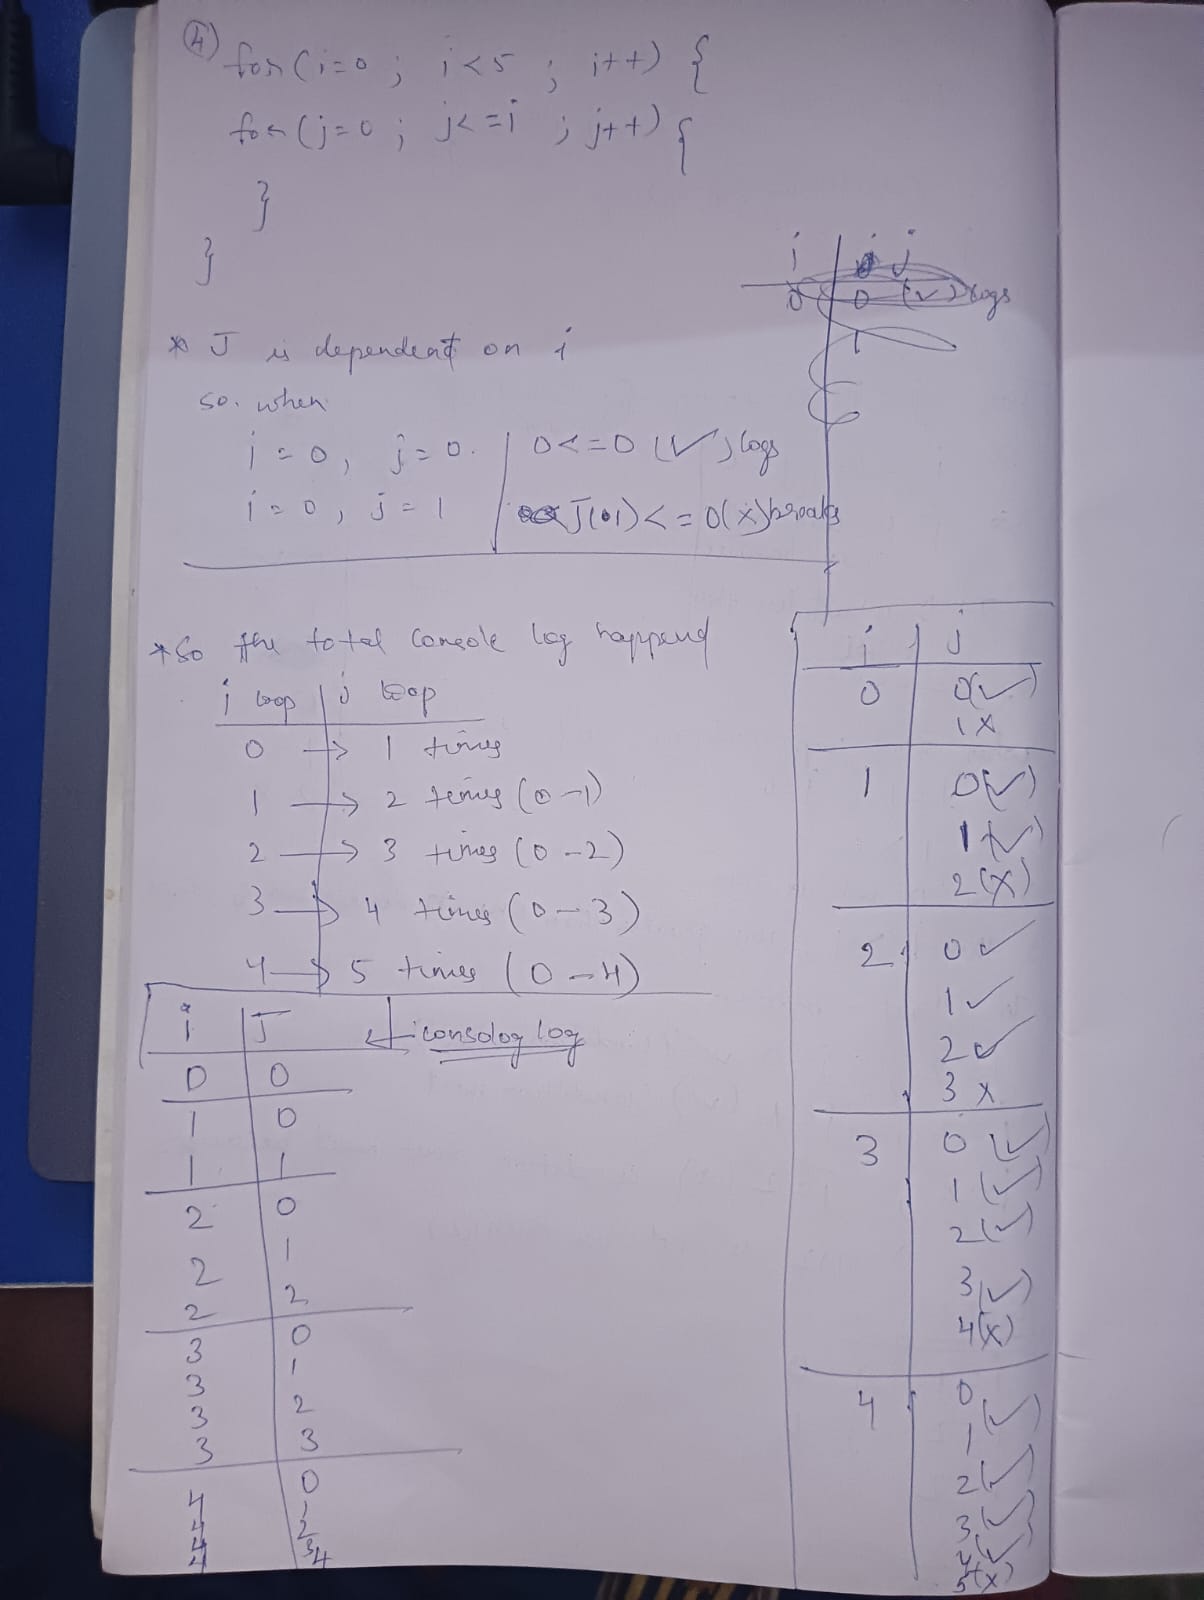 4
for(i=0 ; i<5 ; i++) {
for(j=0 ; j<=i ; j++) {
}
}
i | j
0 | 0 (✓) logs
1
* J is dependent on i
so. when
i=0, j=0. | 0<=0 (✓) logs
i=0, j=1 | J(01)<=0(x)breaks
*So the total console log happend
i loop | j loop
0 → 1 times
1 → 2 times (0-1)
2 → 3 times (0-2)
3 → 4 times (0-3)
4 → 5 times (0-4)
i | J ← consolog log
0 | 0
1 | 0
1 | 1
2 | 0
2 | 1
2 | 2
3 | 0
3 | 1
3 | 2
3 | 3
4 | 0
4 | 1
4 | 2
4 | 3
4
i | j
0 | 0(✓)
1 x
1 | 0(✓)
1(✓)
2(x)
2 | 0 ✓
1 ✓
2 ✓
3 x
3 | 0 (✓)
1 (✓)
2 (✓)
3 (✓)
4(x)
4 | 0
1 (✓)
2(✓)
3(✓)
4(✓)
5(x)